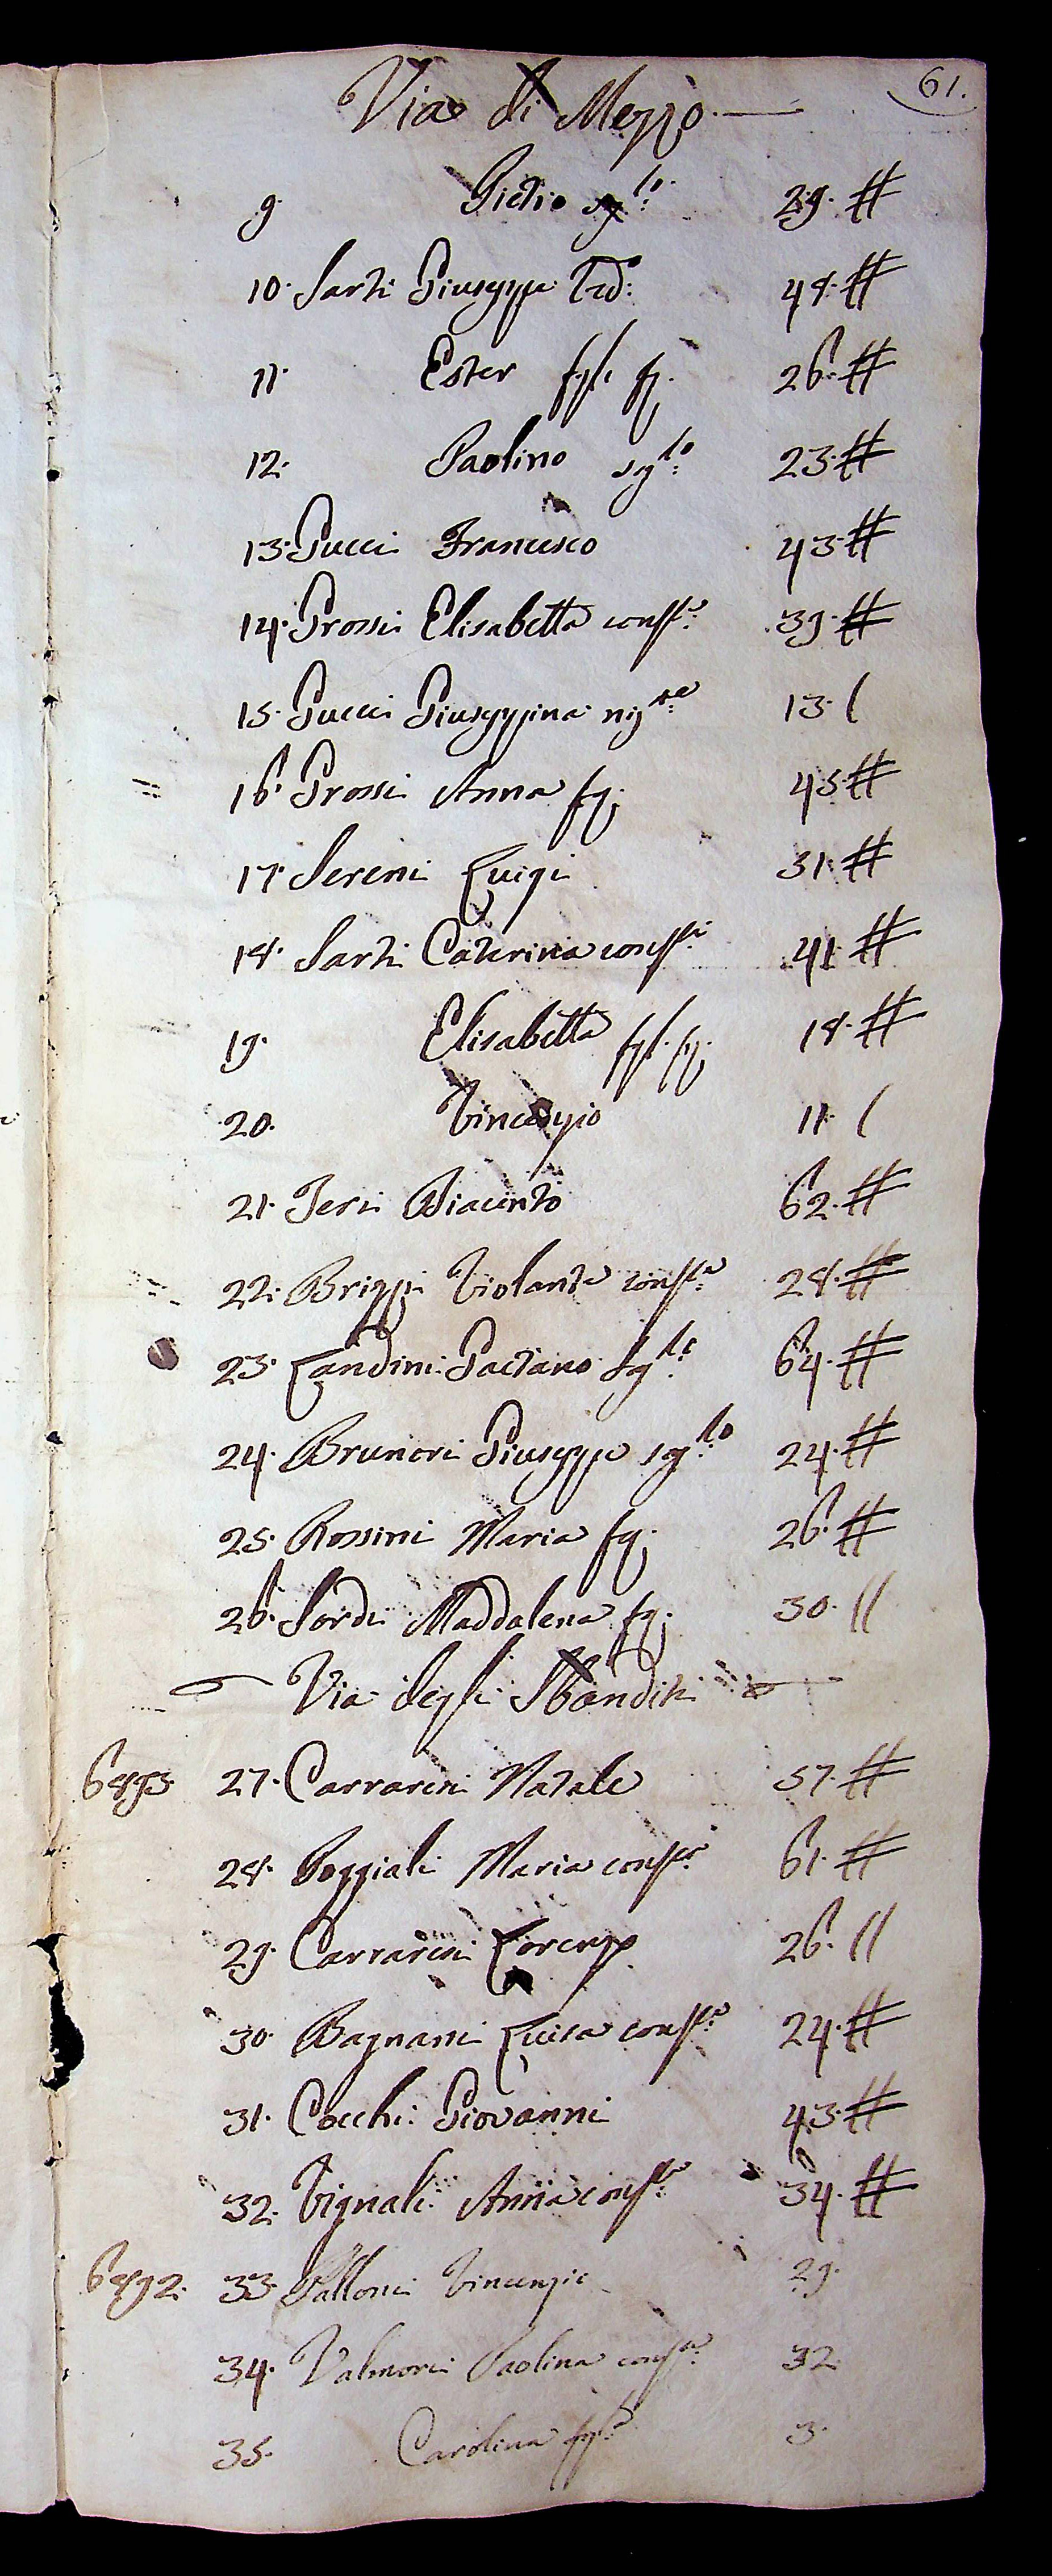 61.
Via di Mezzo
9. Pietro sglo: 29. #
10. Sarti Giuseppe Ved: 48. #
11. Ester figli fg. 26. #
12. Paolino sglo: 23. #
13. Pucci Francesco 43. #
14. Grossi Elisabetta consta: 39. #
15. Pucci Giuseppina 13. (
16. Grossi Anna fg. 45. #
17. Sereni Luigi 31. #
18. Sarti Caterina consta 41. #
19. Elisabetta figl. fg. 18. #
20. Vincenzio 11. (
21. Jeri Giacinto 62. #
22. Brizzi Violante consta: 28. #
23. Landini Gaetano sglo: 64. #
24. Brunori Giuseppe sglo: 24. #
25. Rossini Maria fg. 26. #
26. Sordi Maddalena fg. 30. //
Via degli Sbanditi
27. Carraresi Natale 57. #
28. Poggiali Maria consta 61. #
29. Carraresi Lorenzo 26. //
30. Bagnani Luisa consta: 24. #
31. Cocchi Giovanni 43. #
32. Vignali Anna consta: 34. #
6892. 33. Palloni Vincenzio 29.
34. Valmori Paolina consta: 32
35. Carolina figa: 3.